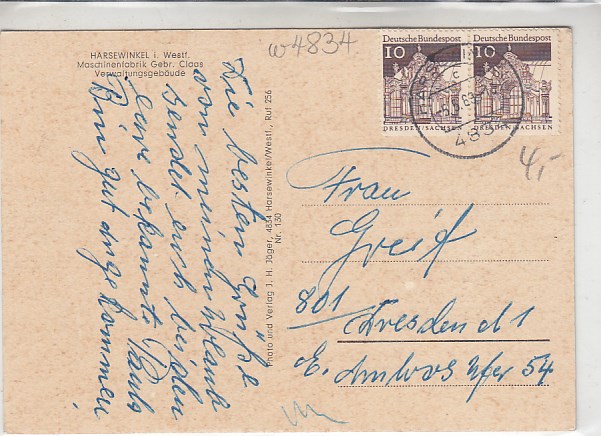 HARSEWINKEL i. Westf.
Maschinenfabrik Gebr. Claas
Verwaltungsgebäude
w 4834
Deutsche Bundespost
10
DRESDEN/SACHSEN
Deutsche Bundespost
10
DRESDEN/SACHSEN
4,-
Die besten Grüße
von meinem Urlaub
sendet euch beiden
eure bekannte
Bin gut angekommen
Photo und Verlag J. H. Jäger, 4834 Harsewinkel/Westf., Ruf 256
Nr. 130
Frau
Greif
801
Dresden A 1
Ufer 54